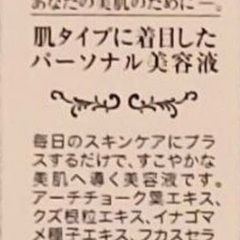 あなたの美肌のために―。
肌タイプに着目した
パーソナル美容液
毎日のスキンケアにプラ
スするだけで、すこやかな
美肌へ導く美容液です。
アーチチョーク葉エキス、
クズ根粒エキス、イナゴマ
メ種子エキス、フカスセラ